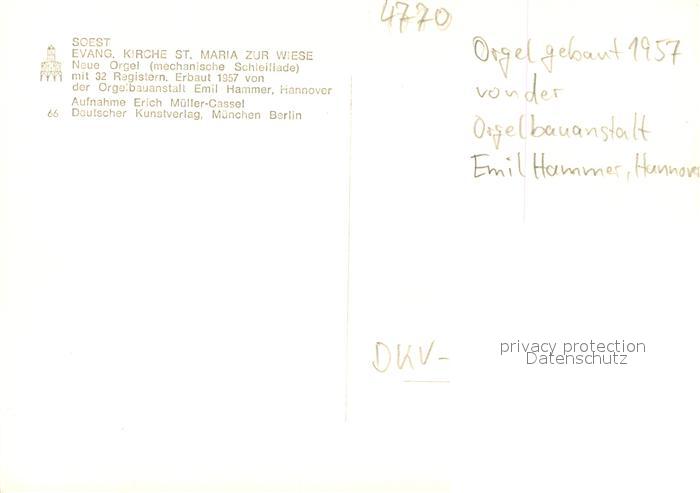 SOEST
EVANG. KIRCHE ST. MARIA ZUR WIESE
Neue Orgel (mechanische Schleiflade)
mit 32 Registern. Erbaut 1957 von
der Orgelbauanstalt Emil Hammer, Hannover
Aufnahme Erich Müller-Cassel
66 Deutscher Kunstverlag, München Berlin
4770
Orgel gebaut 1957
von der
Orgelbauanstalt
Emil Hammer, Hannover
DKV-
privacy protection
Datenschutz